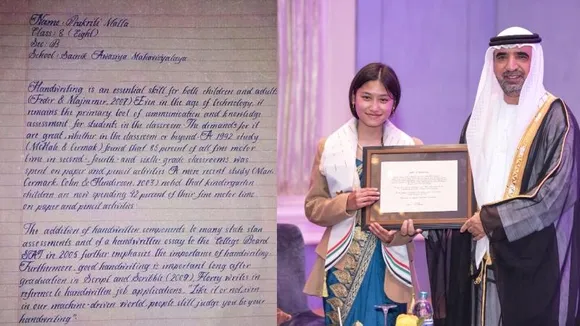 Name: Prakriti Malla
Class: 8 (Eight)
Sec: B
School: Sainik Awasiya Mahavidyalaya
Handwriting is an essential skill for both children and adults
(Feder & Majnemer, 2007). Even in the age of technology, it
remains the primary tool of communication and knowledge
assessment for students in the classroom. The demands for it
are great, whether in the classroom or beyond. A 1992 study
(McHale & Cermak) found that 85 percent of all fine motor
time in second- fourth- and sixth-grade classrooms was
spent on paper and pencil activities. A more recent study (Marr,
Cermak, Cohn & Henderson, 2003) noted that kindergarten
children are now spending 42 percent of their fine motor time
on paper and pencil activities.
The addition of handwritten components to many state stan
assessments and of a handwritten essay to the College Board
SAT in 2005 further emphasize the importance of handwriting.
Furthermore, good handwriting is important long after
graduation. In Script and Scribble (2009), Florey writes in
reference to handwritten job applications, "Like it or not, even
in our machine-driven world, people still judge you by your
handwriting".